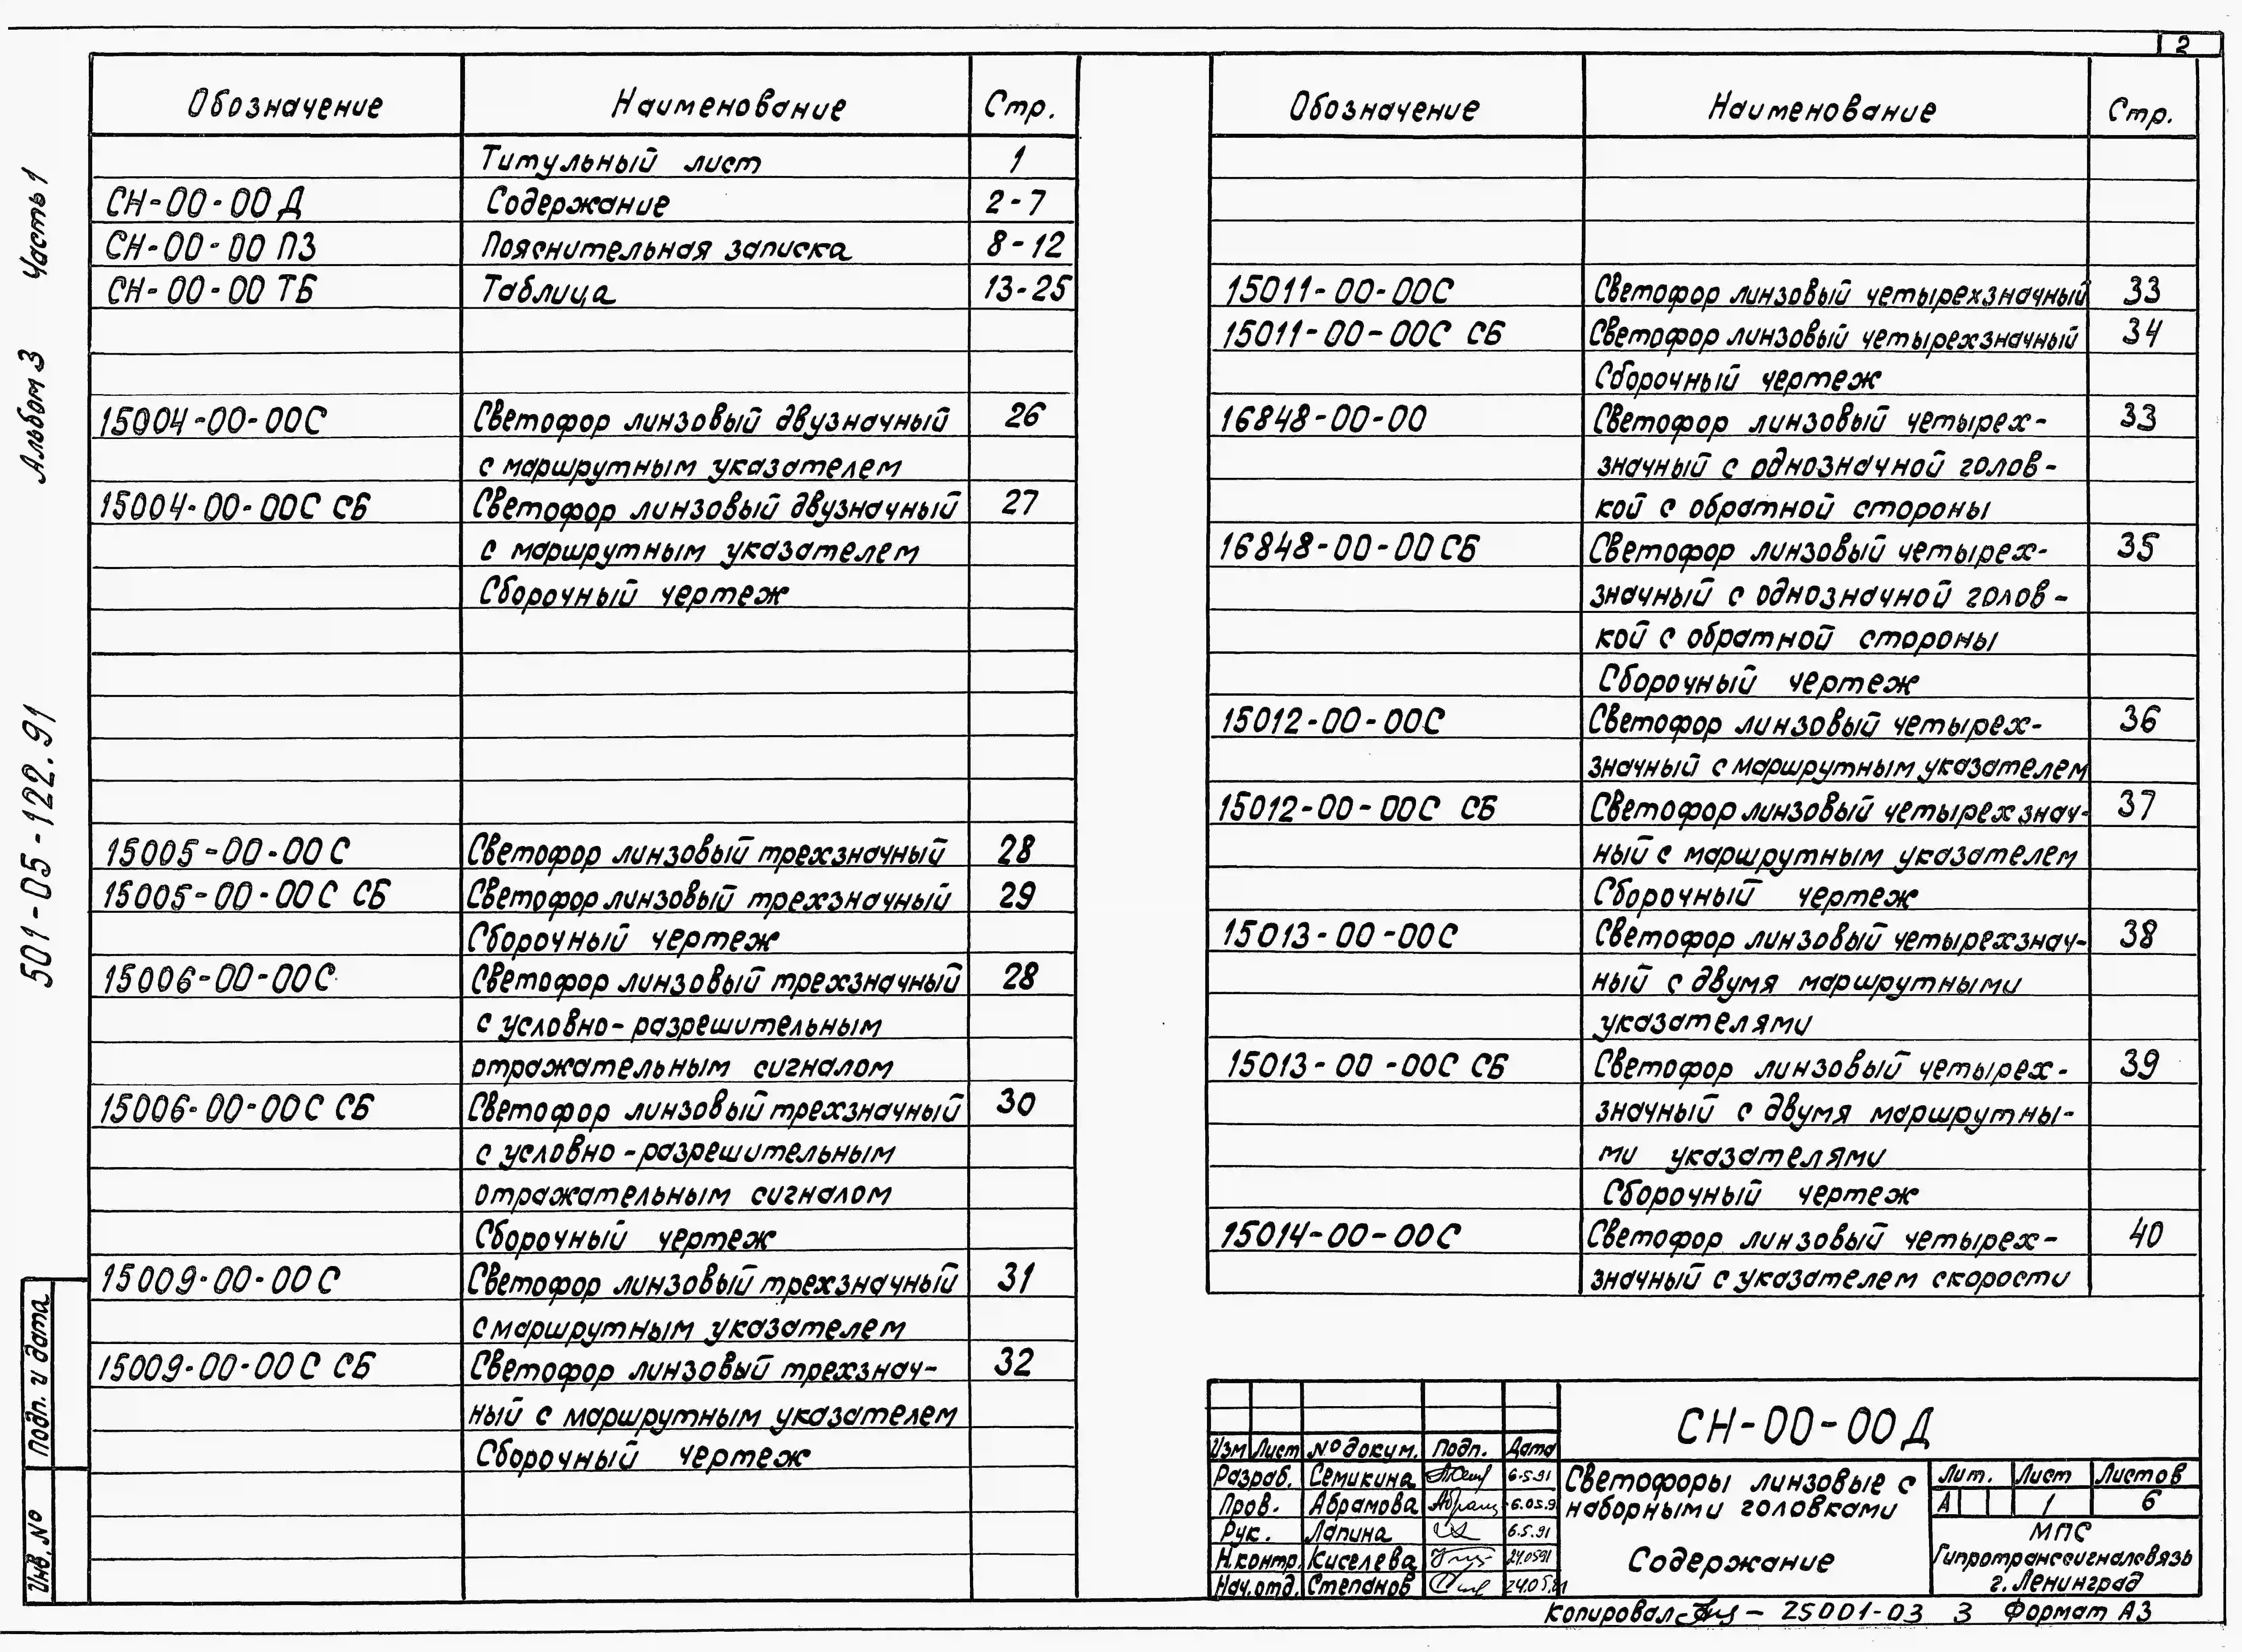 2
Обозначение Наименование Стр.
Титульный лист 1
СН-00-00 Д Содержание 2-7
СН-00-00 ПЗ Пояснительная записка 8-12
СН-00-00 ТБ Таблица 13-25
15004-00-00С Светофор линзовый двузначный 26
с маршрутным указателем
15004-00-00С СБ Светофор линзовый двузначный 27
с маршрутным указателем
Сборочный чертеж
15005-00-00С Светофор линзовый трехзначный 28
15005-00-00С СБ Светофор линзовый трехзначный 29
Сборочный чертеж
15006-00-00С Светофор линзовый трехзначный 28
с условно-разрешительным
отражательным сигналом
15006-00-00С СБ Светофор линзовый трехзначный 30
с условно-разрешительным
отражательным сигналом
Сборочный чертеж
15009-00-00С Светофор линзовый трехзначный 31
с маршрутным указателем
15009-00-00С СБ Светофор линзовый трехзнач- 32
ный с маршрутным указателем
Сборочный чертеж
Обозначение Наименование Стр.
15011-00-00С Светофор линзовый четырехзначный 33
15011-00-00С СБ Светофор линзовый четырехзначный 34
Сборочный чертеж
16848-00-00 Светофор линзовый четырех- 33
значный с однозначной голов-
кой с обратной стороны
16848-00-00СБ Светофор линзовый четырех- 35
значный с однозначной голов-
кой с обратной стороны
Сборочный чертеж
15012-00-00С Светофор линзовый четырех- 36
значный с маршрутным указателем
15012-00-00С СБ Светофор линзовый четырехзнач- 37
ный с маршрутным указателем
Сборочный чертеж
15013-00-00С Светофор линзовый четырехзнач- 38
ный с двумя маршрутными
указателями
15013-00-00С СБ Светофор линзовый четырех- 39
значный с двумя маршрутны-
ми указателями
Сборочный чертеж
15014-00-00С Светофор линзовый четырех- 40
значный с указателем скорости
СН-00-00 Д
Изм Лист № докум. Подп. Дата
Разраб. Семикина 6.5.91
Пров. Абрамова 6.05.9
Рук. Лапина 6.5.91
Н.контр. Киселева 24.0591
Нач.отд. Степанов 24.05.91
Светофоры линзовые с
наборными головками
Содержание
Лит. Лист Листов
А 1 6
МПС
Гипротранссигналсвязь
г. Ленинград
Копировал 25001-03 3 Формат А3
501-05-122.91 Альбом 3 Часть 1
Подп. и дата
Инв. №